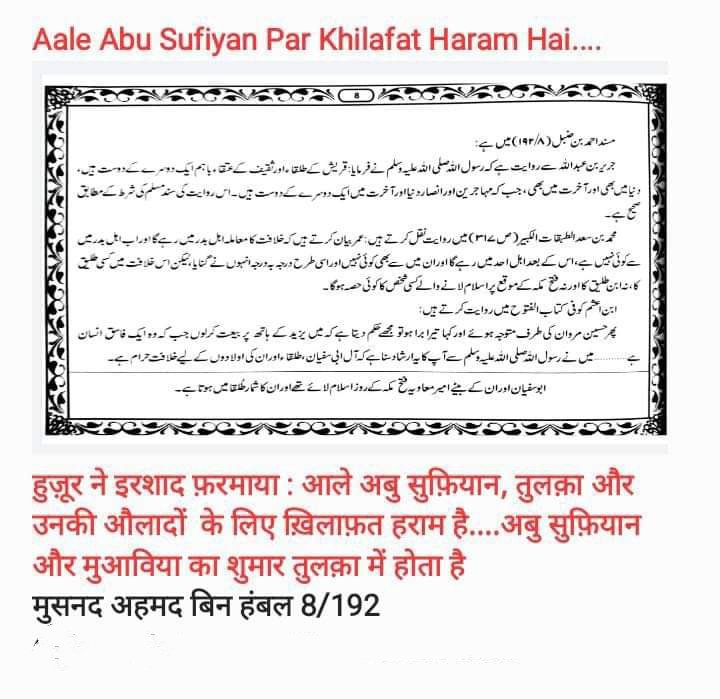 Aale Abu Sufiyan Par Khilafat Haram Hai....
8
مسند احمد بن حنبل (۱۹۲/۸) میں ہے:
جریر بن عبداللہ سے روایت ہے کہ رسول اللہ صلی اللہ علیہ وسلم نے فرمایا: قریش کے طلقاء اور ثقیف کے عتقاء باہم ایک دوسرے کے دوست ہیں،
دنیا میں بھی اور آخرت میں بھی، جب کہ مہاجرین اور انصار دنیا اور آخرت میں ایک دوسرے کے دوست ہیں۔ اس روایت کی سند مسلم کی شرط کے مطابق
صحیح ہے۔
محمد بن سعد الطبقات الکبیر (ص ۳۱۷) میں روایت نقل کرتے ہیں: عمر بیان کرتے ہیں کہ خلافت کا معاملہ اہل بدر میں رہے گا اور اب اہل بدر میں
سے کوئی نہیں ہے، اس کے بعد اہل احد میں رہے گا اور ان میں سے بھی کوئی نہیں اور اسی طرح درجہ بہ درجہ انہوں نے گنایا، لیکن اس خلافت میں کسی طلیق
کا، نہ ابن طلیق کا اور نہ فتح مکہ کے موقع پر اسلام لانے والے کسی شخص کا کوئی حصہ ہوگا۔
ابن اعثم کوفی کتاب الفتوح میں روایت کرتے ہیں:
پھر حسین مروان کی طرف متوجہ ہوئے اور کہا تیرا برا ہو تو مجھے حکم دیتا ہے کہ میں یزید کے ہاتھ پر بیعت کرلوں جب کہ وہ ایک فاسق انسان
ہے ........... میں نے رسول اللہ صلی اللہ علیہ وسلم سے آپ کا یہ ارشاد سنا ہے کہ آل ابی سفیان، طلقاء اور ان کی اولادوں کے لیے خلافت حرام ہے۔
ابوسفیان اور ان کے بیٹے امیر معاویہ فتح مکہ کے روز اسلام لائے تھے اور ان کا شمار طُلقا میں ہوتا ہے۔
हुज़ूर ने इरशाद फ़रमाया : आले अबु सुफ़ियान, तुलक़ा और
उनकी औलादों के लिए ख़िलाफ़त हराम है....अबु सुफ़ियान
और मुआविया का शुमार तुलक़ा में होता है
मुसनद अहमद बिन हंबल 8/192